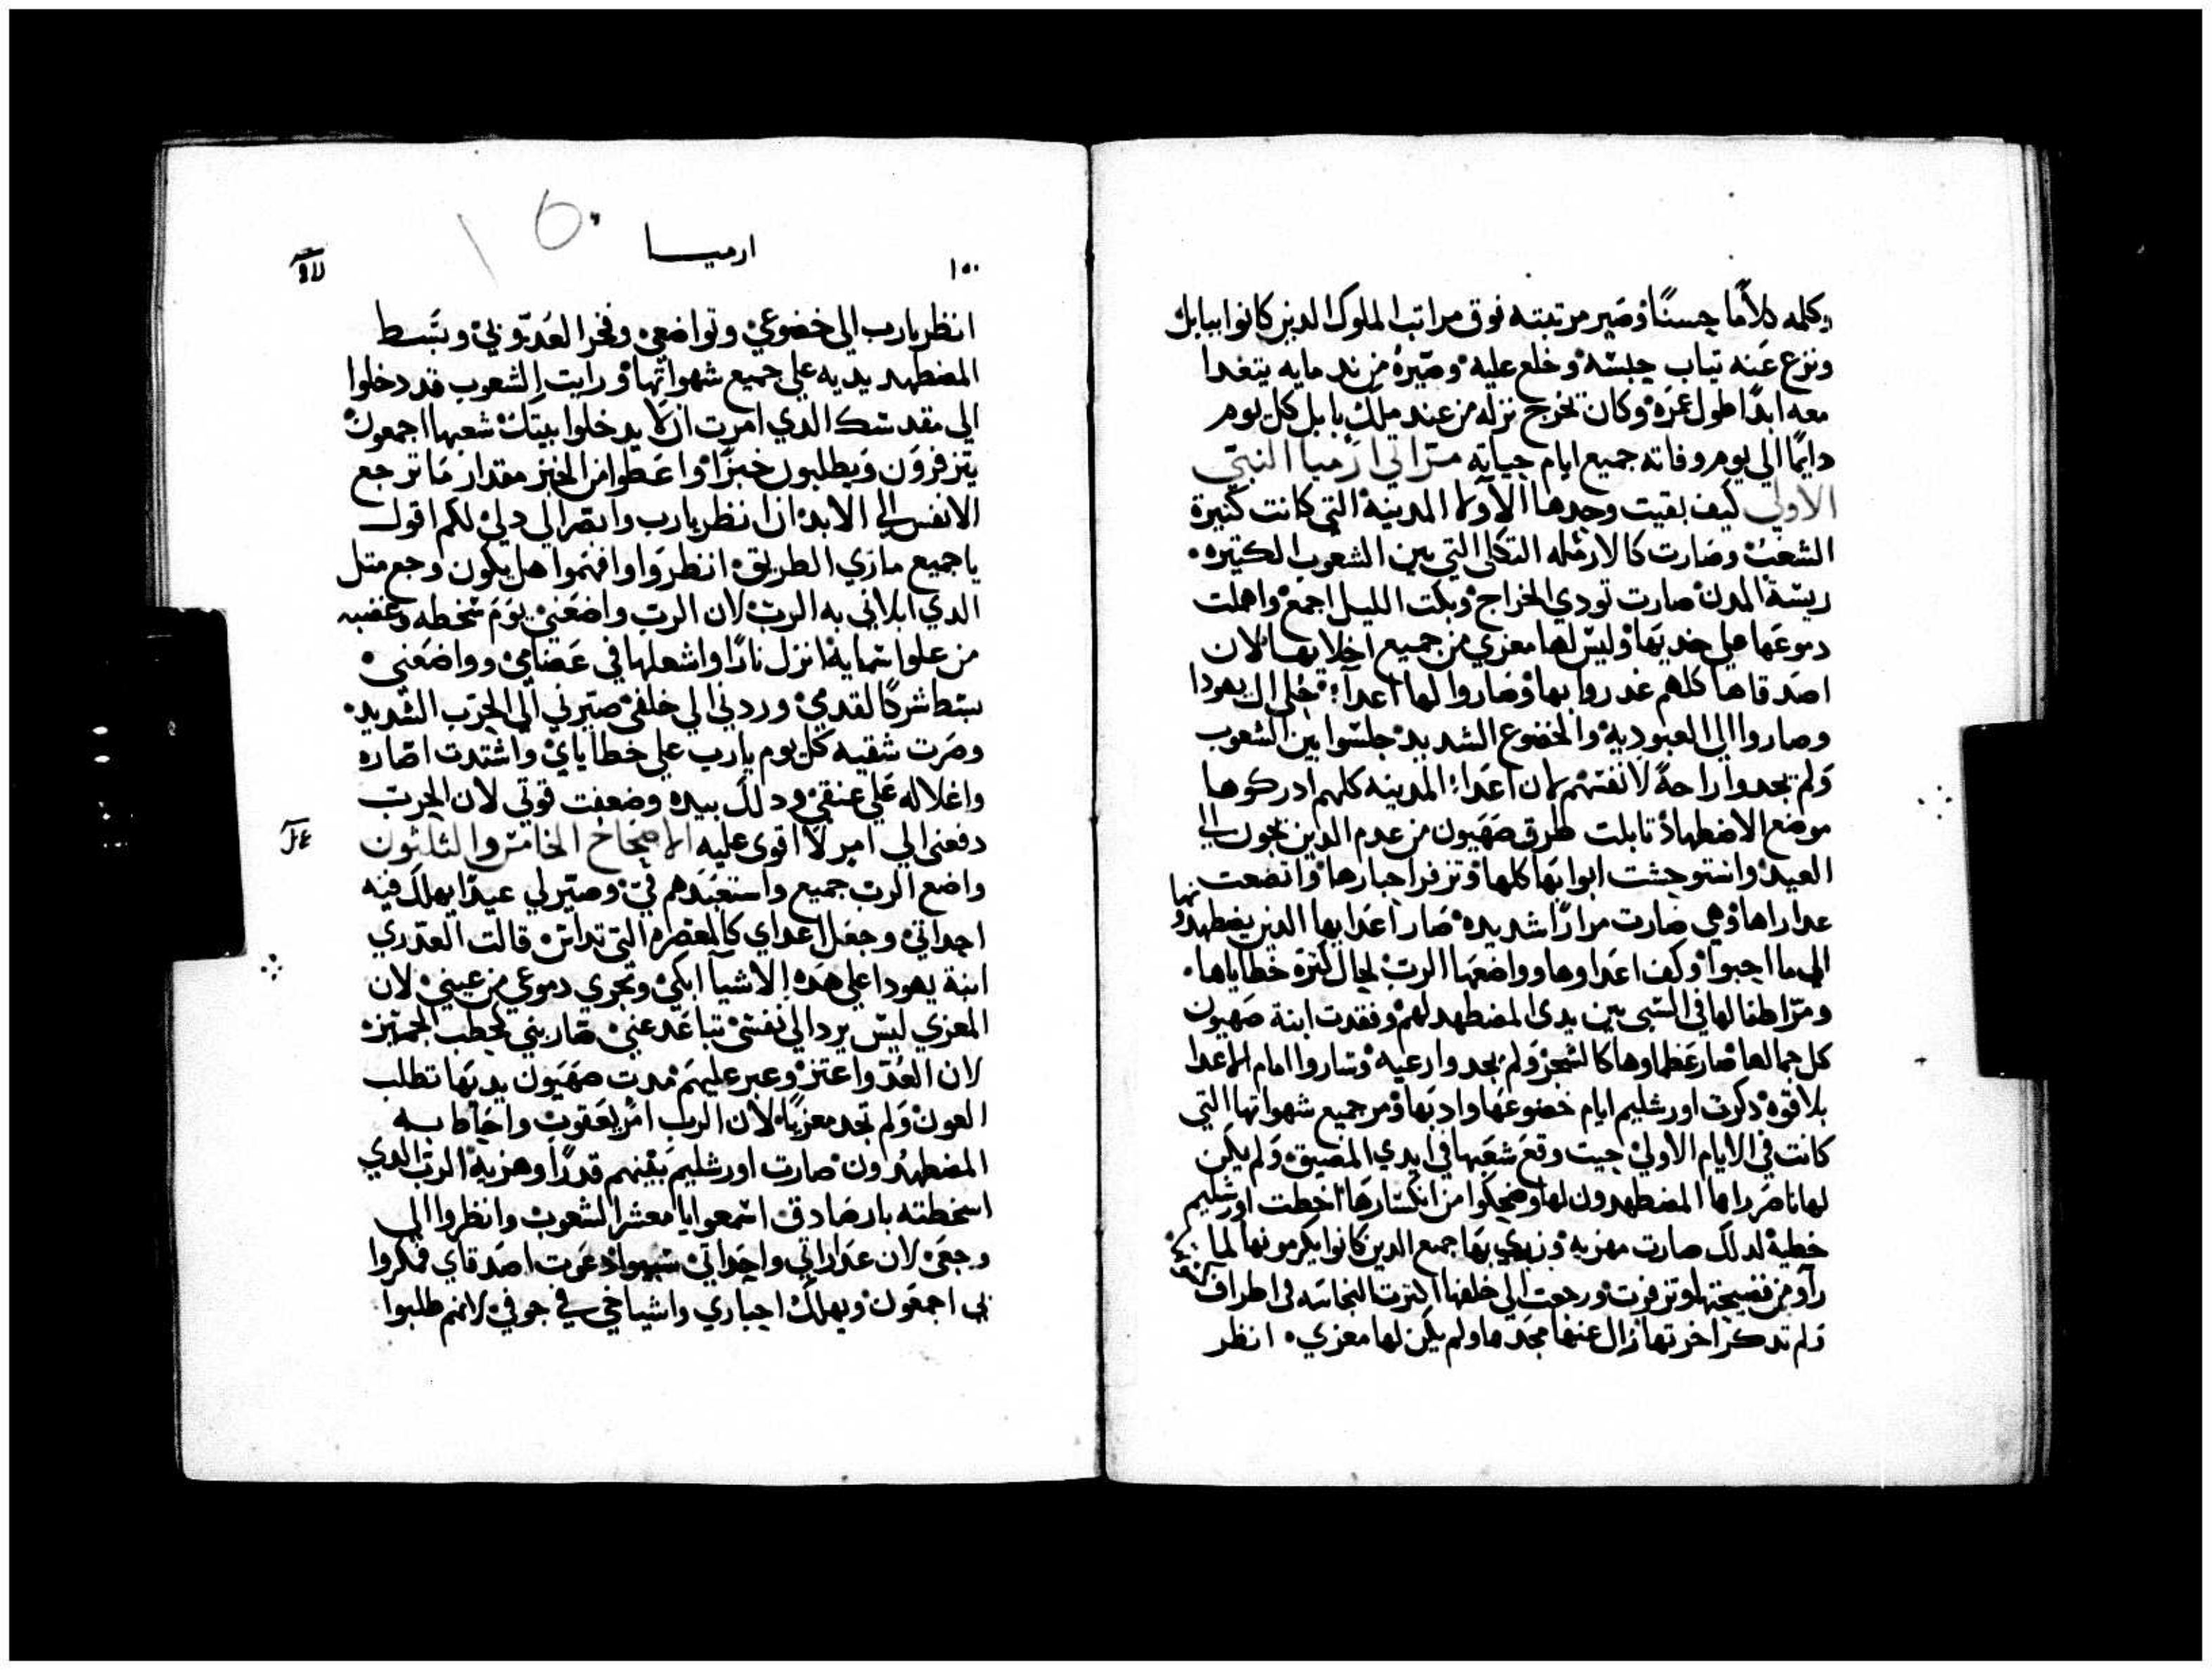 وكلمه كلامًا حسنًا وصير مرتبته فوق مراتب الملوك الدين كانوا ببابل
ونزع عنه تياب حبسه وخلع عليه وصيره من ندمايه يتغدا
معه ابدًا طول عمره وكان تخرج نزله من عند ملك بابل كل يوم
دايمًا الي يوم وفاته جميع ايام حياته مراتي ارميا النبي
الاولي كيف بقيت وحدها الاولا المدينة التي كانت كتيرة
الشعب وصارت كالارمله التكلي التي بين الشعوب الكتيره
ريسة المدن صارت تودي الخراج وبكت الليل اجمع واهملت
دموعها علي خديها وليس لها معزي من جميع اخلايها لان
اصدقاها كلهم غدروا بها وصاروا لها اعدا جلي ال يهودا
وصاروا الي العبودية والخضوع الشديد جلسوا بين الشعوب
ولم يجدوا راحة لانفسهم لان اعدا المدينه كلهم ادركوها
موضع الاضطهاد تابلت طرق صهيون من عدم الدين يحون الي
العيد واستوحشت ابوابها كلها وتزفر احبارها واتضعت
عداراها وهي صارت مرارًا شديده صار اعدايها الدين يضطهدونها
الي ما احبوا وكف اعداوها وواضعها الرب لحال كترة خطاياها
ومرّ اطفالها في السبي بين يدي المضطهد لهم وفقدت ابنة صهيون
كل جمالها صار عظماوها كالشجر ولم يجدوا رعيه وساروا امام الاعدا
بلا قوه دكرت اورشليم ايام خضوعها وادبها ومر جميع شهواتها التي
كانت في الايام الاولي حيت وقع شعبها في ايدي المضيق ولم يكن
لها ناصر راها المضطهدون لها وضحكوا من انكسارها اخطت اورشليم
خطية لدلك صارت مهزيه وزري بها جميع الدين كانوا يكرمونها لما
راو من فضيحتها وتزفرت ورجعت الي خلفها اكترت النجاسه في اطراف
ولم تدكر اخرتها زال عنها مجدها ولم يكن لها معزي انظر
ارميا
١٥٠
انظر يارب الي خضوعي وتواضعي وفخر العدو بي وبسط
المضطهد يديه علي جميع شهواتها ورايت الشعوب قد دخلوا
الي مقدسك الدي امرت ان لا يدخلوا بيتك شعبها اجمعون
يتزفرون ويطلبون خبزًا واعطوا من الخبز مقدار ما ترجع
الانفس الي الابدان انظر يارب وابصر الي دلي لكم اقول
يا جميع مارّي الطريق انظروا وافهموا هل يكون وجع متل
الدي ابلاني به الرب لان الرب واضعني يوم سخطه وغضبه
من علوا سمايه انزل نارًا واشعلها في عضامي وواضعني
بسط شركًا لقدمي وردني الي خلفي صيرني الي الحرب الشديد
وصرت شقيه كل يوم يارب علي خطاياي واشتدت اصاره
واغلاله علي عنقي ودلك بيده وضعفت قوتي لان الحرب
دفعني الي امر لا اقوي عليه الاصحاح الخامس والتلتون
واضع الرب جميع واستعبدهم في وصير لي عيدًا يهلك فيه
احداتي وجعل اعداي كالمعصره التي تداس قالت العدري
ابنة يهودا علي هده الاشيا ابكي وتجري دموعي من عيني لان
المعزي ليس يرد الي نفسي تباعد عني صار بني لحطب الجمتيزه
لان العدو اعتز وعبر عليهم مدت صهيون يديها تطلب
العون ولم تجد معزيًا لان الرب امر يعقوب واحاط به
المضطهدون صارت اورشليم بينهم قدرًا وهزية الرب الدي
اسخطته بار صادق اسمعوا يا معشر الشعوب وانظروا الي
وجعي لان عداراتي واحداتي سبيوا دعوت اصدقاي فمكروا
بي اجمعون ويهلك احباري واشياخي في جوفي لانهم طلبوا